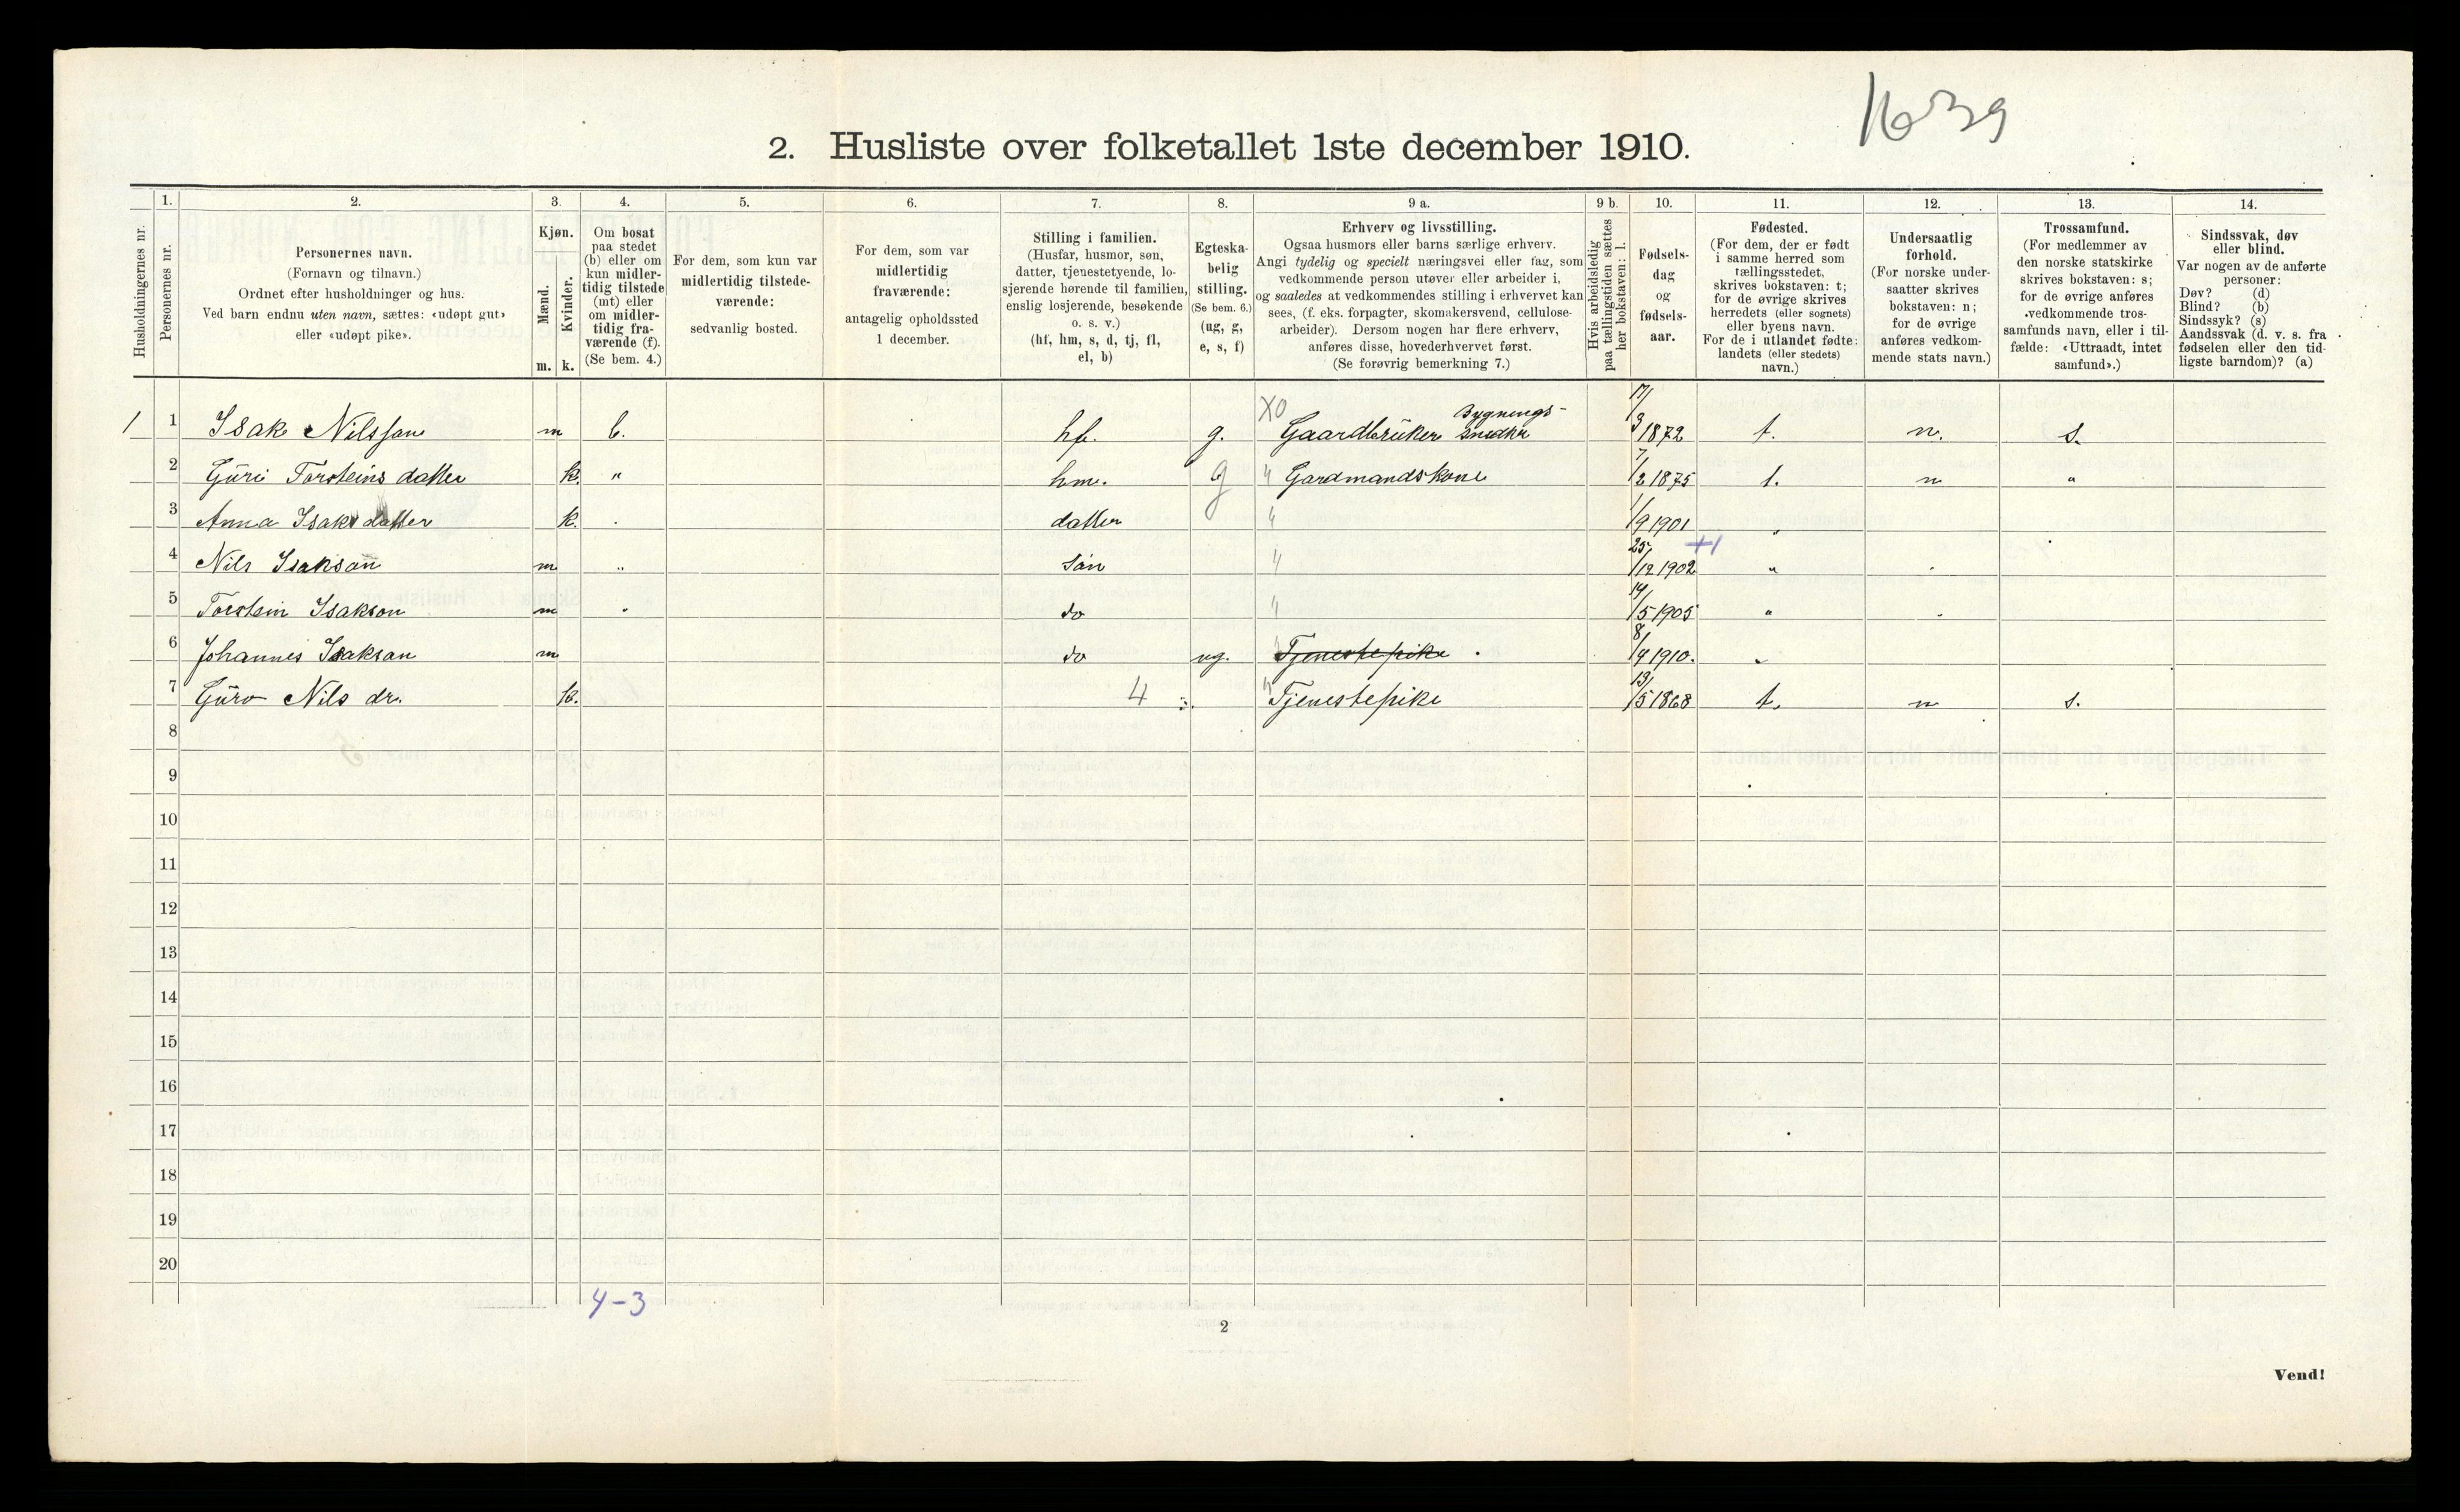 1639
2. Husliste over folketallet 1ste december 1910.
Husholdningernes nr.
1.
Personernes nr.
2.
Personernes navn.
(Fornavn og tilnavn.)
Ordnet efter husholdninger og hus.
Ved barn endnu uten navn, sættes: «udøpt gut»
eller «udøpt pike».
3.
Kjøn.
Mænd.
Kvinder.
m. k.
4.
Om bosat
paa stedet
(b) eller om
kun midler-
tidig tilstede
(mt) eller
om midler-
tidig fra-
værende (f).
(Se bem. 4.)
5.
For dem, som kun var
midlertidig tilstede-
værende:
sedvanlig bosted.
6.
For dem, som var
midlertidig
fraværende:
antagelig opholdssted
1 december.
7.
Stilling i familien.
(Husfar, husmor, søn,
datter, tjenestetyende, lo-
sjerende hørende til familien,
enslig losjerende, besøkende
o. s. v.)
(hf, hm, s, d, tj, fl,
el, b)
8.
Egteska-
belig
stilling.
(Se bem. 6.)
(ug, g,
e, s, f)
9 a.
Erhverv og livsstilling.
Ogsaa husmors eller barns særlige erhverv.
Angi tydelig og specielt næringsvei eller fag, som
vedkommende person utøver eller arbeider i,
og saaledes at vedkommendes stilling i erhvervet kan
sees, (f. eks. forpagter, skomakersvend, cellulose-
arbeider). Dersom nogen har flere erhverv,
anføres disse, hovederhvervet først.
(Se forøvrig bemerkning 7.)
9 b.
Hvis arbeidsledig
paa tællingstiden sættes
her bokstaven: l.
10.
Fødsels-
dag
og
fødsels-
aar.
11.
Fødested.
(For dem, der er født
i samme herred som
tællingsstedet,
skrives bokstaven: t;
for de øvrige skrives
herredets (eller sognets)
eller byens navn.
For de i utlandet fødte:
landets (eller stedets)
navn.)
12.
Undersaatlig
forhold.
(For norske under-
saatter skrives
bokstaven: n;
for de øvrige
anføres vedkom-
mende stats navn.)
13.
Trossamfund.
(For medlemmer av
den norske statskirke
skrives bokstaven: s;
for de øvrige anføres
«vedkommende tros-
samfunds navn, eller i til-
fælde: «Uttraadt, intet
samfund».)
14.
Sindssvak, døv
eller blind.
Var nogen av de anførte
personer:
Døv? (d)
Blind? (b)
Sindssyk? (s)
Aandssvak (d. v. s. fra
fødselen eller den tid-
ligste barndom)? (a)
1 1 Isak Nilsson m b. hf. g. X0 Gaardbrüker Bygnings- snedker 17/3 1872 t. n. s.
2 Güri Torsteins datter k. " hm. g " Gardmandskone 7/2 1875 t. n "
3 Anna Isaksdatter k. " datter " 1/9 1901 "
4 Nils Isakson m " sön " 25/12 1902 +1 " "
5 Torstein Isakson m " do " 14/5 1905 " "
6 Johannes Isakson m do ug. " Tjenestepike 8/4 1910. "
7 Güro Nils dr. k. 4 " Tjenestepike 13/5 1868 t. n s.
8
9
10
11
12
13
14
15
16
17
18
19
20
4-3
2
Vend!